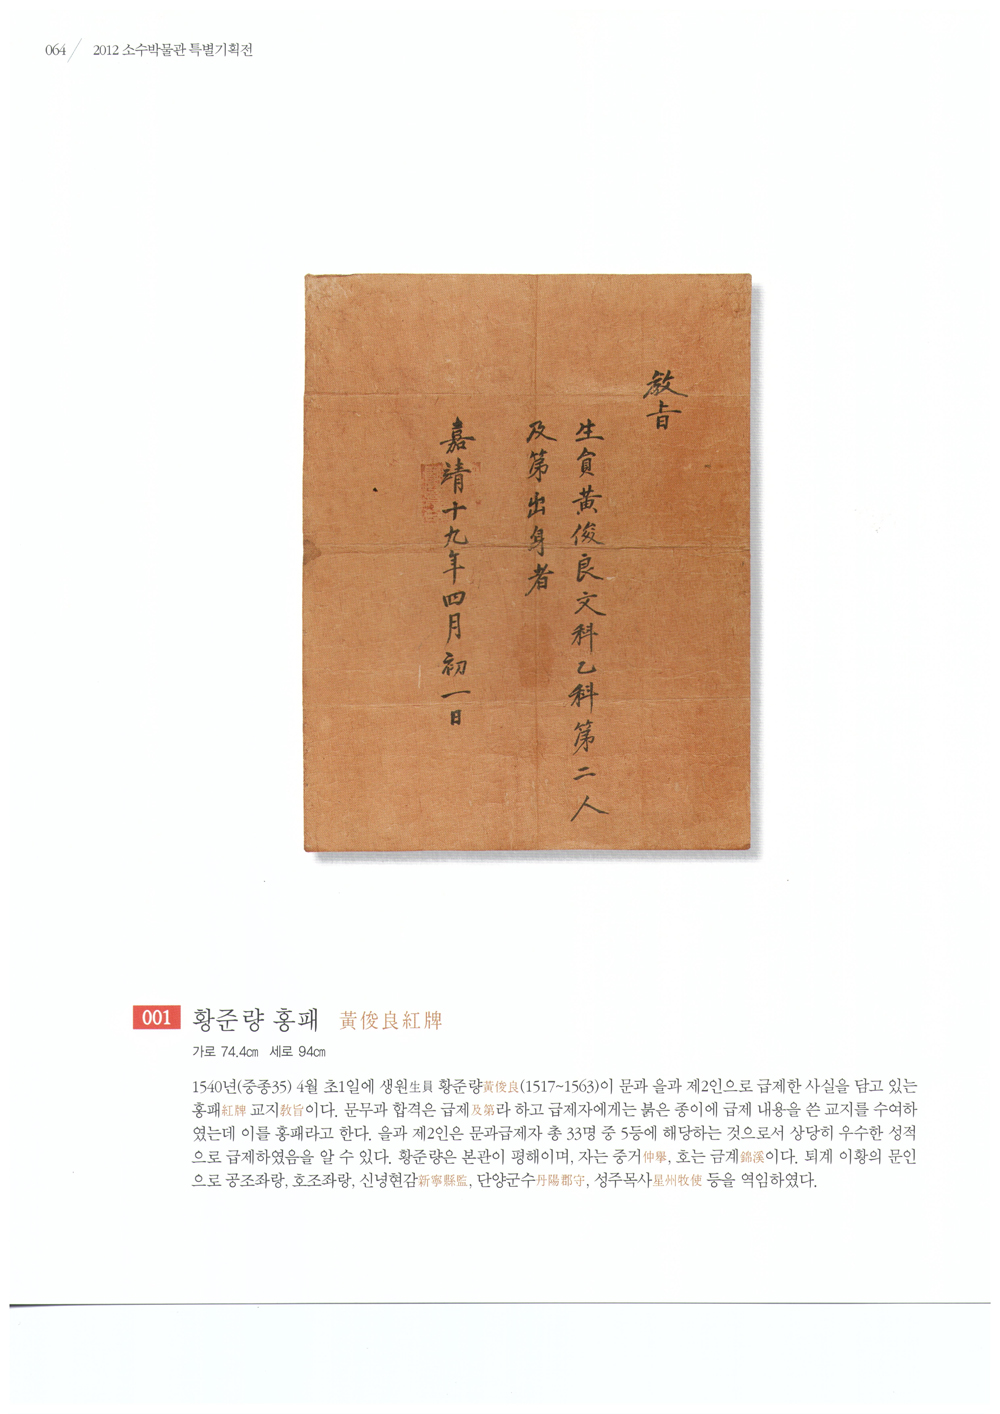 064 / 2012 소수박물관 특별기획전
敎旨
生員黃俊良文科乙科第二人
及第出身者
嘉靖十九年四月初一日
001 황준량 홍패 黃俊良紅牌
가로 74.4㎝ 세로 94㎝
1540년(중종35) 4월 초1일에 생원生員 황준량黃俊良(1517~1563)이 문과 을과 제2인으로 급제한 사실을 담고 있는
홍패紅牌 교지敎旨이다. 문무과 합격은 급제及第라 하고 급제자에게는 붉은 종이에 급제 내용을 쓴 교지를 수여하
였는데 이를 홍패라고 한다. 을과 제2인은 문과급제자 총 33명 중 5등에 해당하는 것으로서 상당히 우수한 성적
으로 급제하였음을 알 수 있다. 황준량은 본관이 평해이며, 자는 중거仲擧, 호는 금계錦溪이다. 퇴계 이황의 문인
으로 공조좌랑, 호조좌랑, 신녕현감新寧縣監, 단양군수丹陽郡守, 성주목사星州牧使 등을 역임하였다.